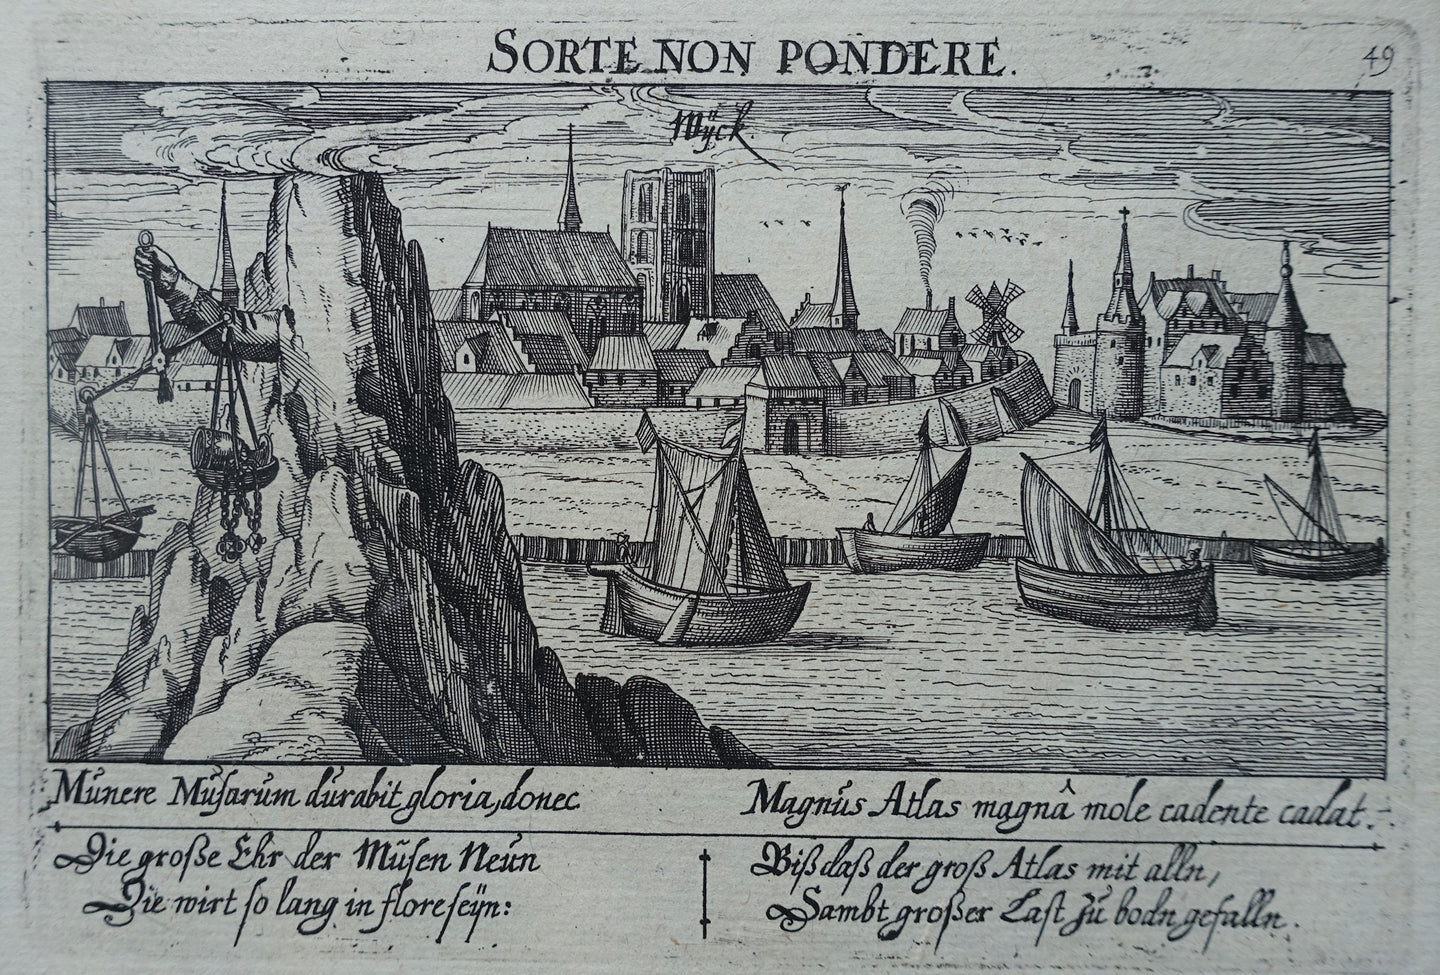 SORTE NON PONDERE.
49
Wÿck.
Munere Musarum durabit gloria, donec
Magnus Atlas magnâ mole cadente cadat.
Die große Ehr der Musen Neun
Die wirt so lang in flore seÿn:
Biß daß der groß Atlas mit alln,
Sambt großer Last zu bodn gefalln.